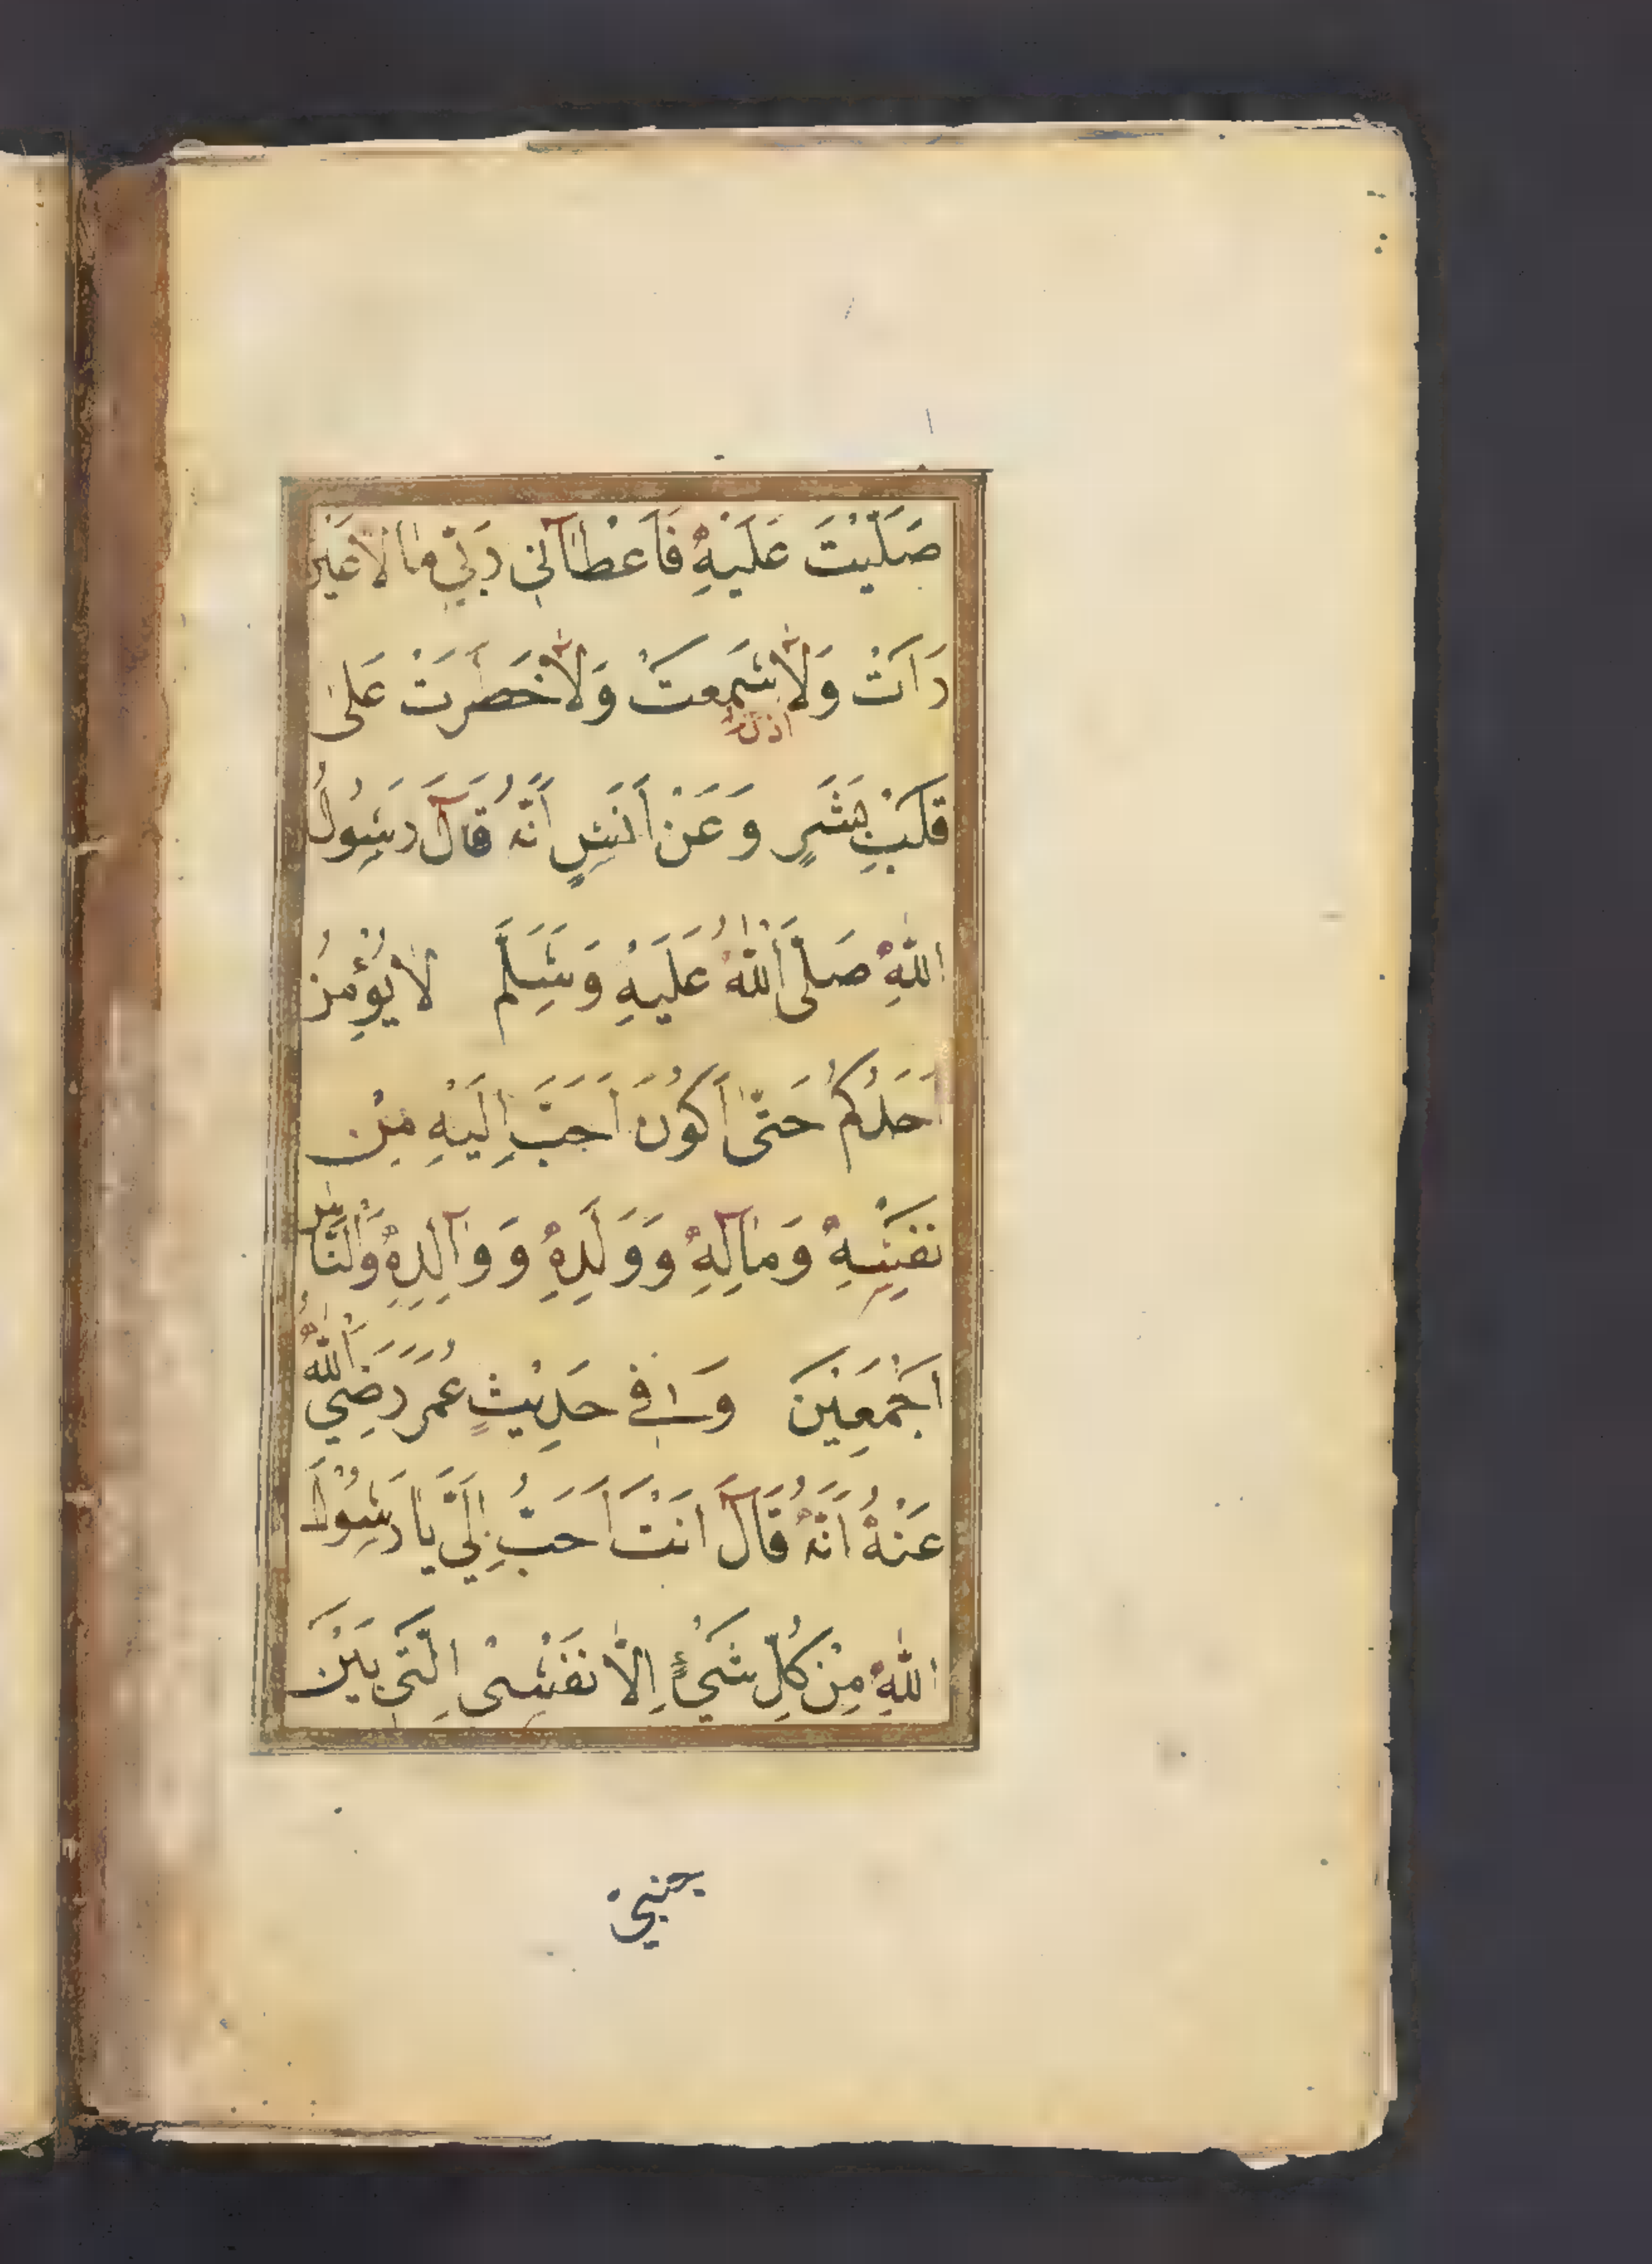 صَلَّيْتَ عَلَيْهِ فَاَعْطَانِي رَبِّي مَا لَا عَيْنٌ
رَاَتْ وَلَا سَمِعَتْ وَلَا خَطَرَتْ عَلَى
اذن
قَلْبِ بَشَرٍ وَعَنْ اَنَسٍ اَنَّهُ قَالَ رَسُولُ
اللهِ صَلَّى اللهُ عَلَيْهِ وَسَلَّمَ لَا يُؤْمِنُ
اَحَدُكُمْ حَتَّى اَكُونَ اَحَبَّ اِلَيْهِ مِنْ
نَفْسِهِ وَمَالِهِ وَوَلَدِهِ وَوَالِدِهِ وَالنَّاسِ
اَجْمَعِينَ وَفِي حَدِيثِ عُمَرَ رَضِيَ اللهُ
عَنْهُ اَنَّهُ قَالَ اَنْتَ اَحَبُّ اِلَيَّ يَا رَسُولَ
اللهِ مِنْ كُلِّ شَيْءٍ اِلَّا نَفْسِى الَّتِى بَيْنَ
جنبيّ